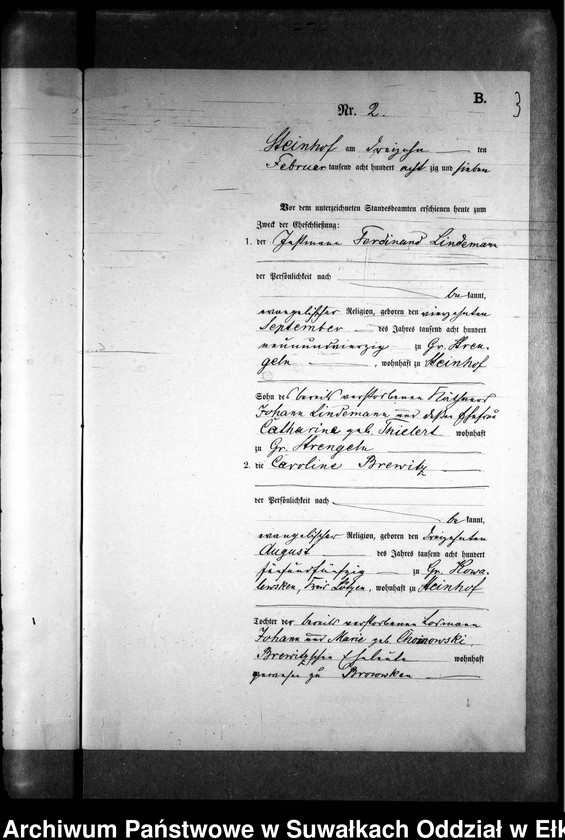 B.
3
Nr. 2.
Steinhof am dreizehn ten
Februar tausend acht hundert acht zig und sieben
Vor dem unterzeichneten Standesbeamten erschienen heute zum
Zweck der Eheschließung:
1. der Instmann Ferdinand Lindemann
der Persönlichkeit nach
be kannt,
evangelischer Religion, geboren den vierzehnten
September des Jahres tausend acht hundert
neunundvierzig zu Gr. Stren-
geln , wohnhaft zu Steinhof
Sohn des bereits verstorbenen Käthners
Johann Lindemann und dessen Ehefrau
Catharine geb. Thielert wohnhaft
zu Gr. Strengeln
2. die Caroline Brewitz
der Persönlichkeit nach
be kannt,
evangelischer Religion, geboren den dreizehnten
August des Jahres tausend acht hundert
fünfundfünfzig zu Gr. Kowa-
lewsken, Kreis Lötzen, wohnhaft zu Steinhof
Tochter der bereits verstorbenen Losmann
Johann und Marie geb. Choinowski
Brewitzschen Eheleute wohnhaft
gewesen zu Browsken
Archiwum Państwowe w Suwałkach Oddział w Ełk